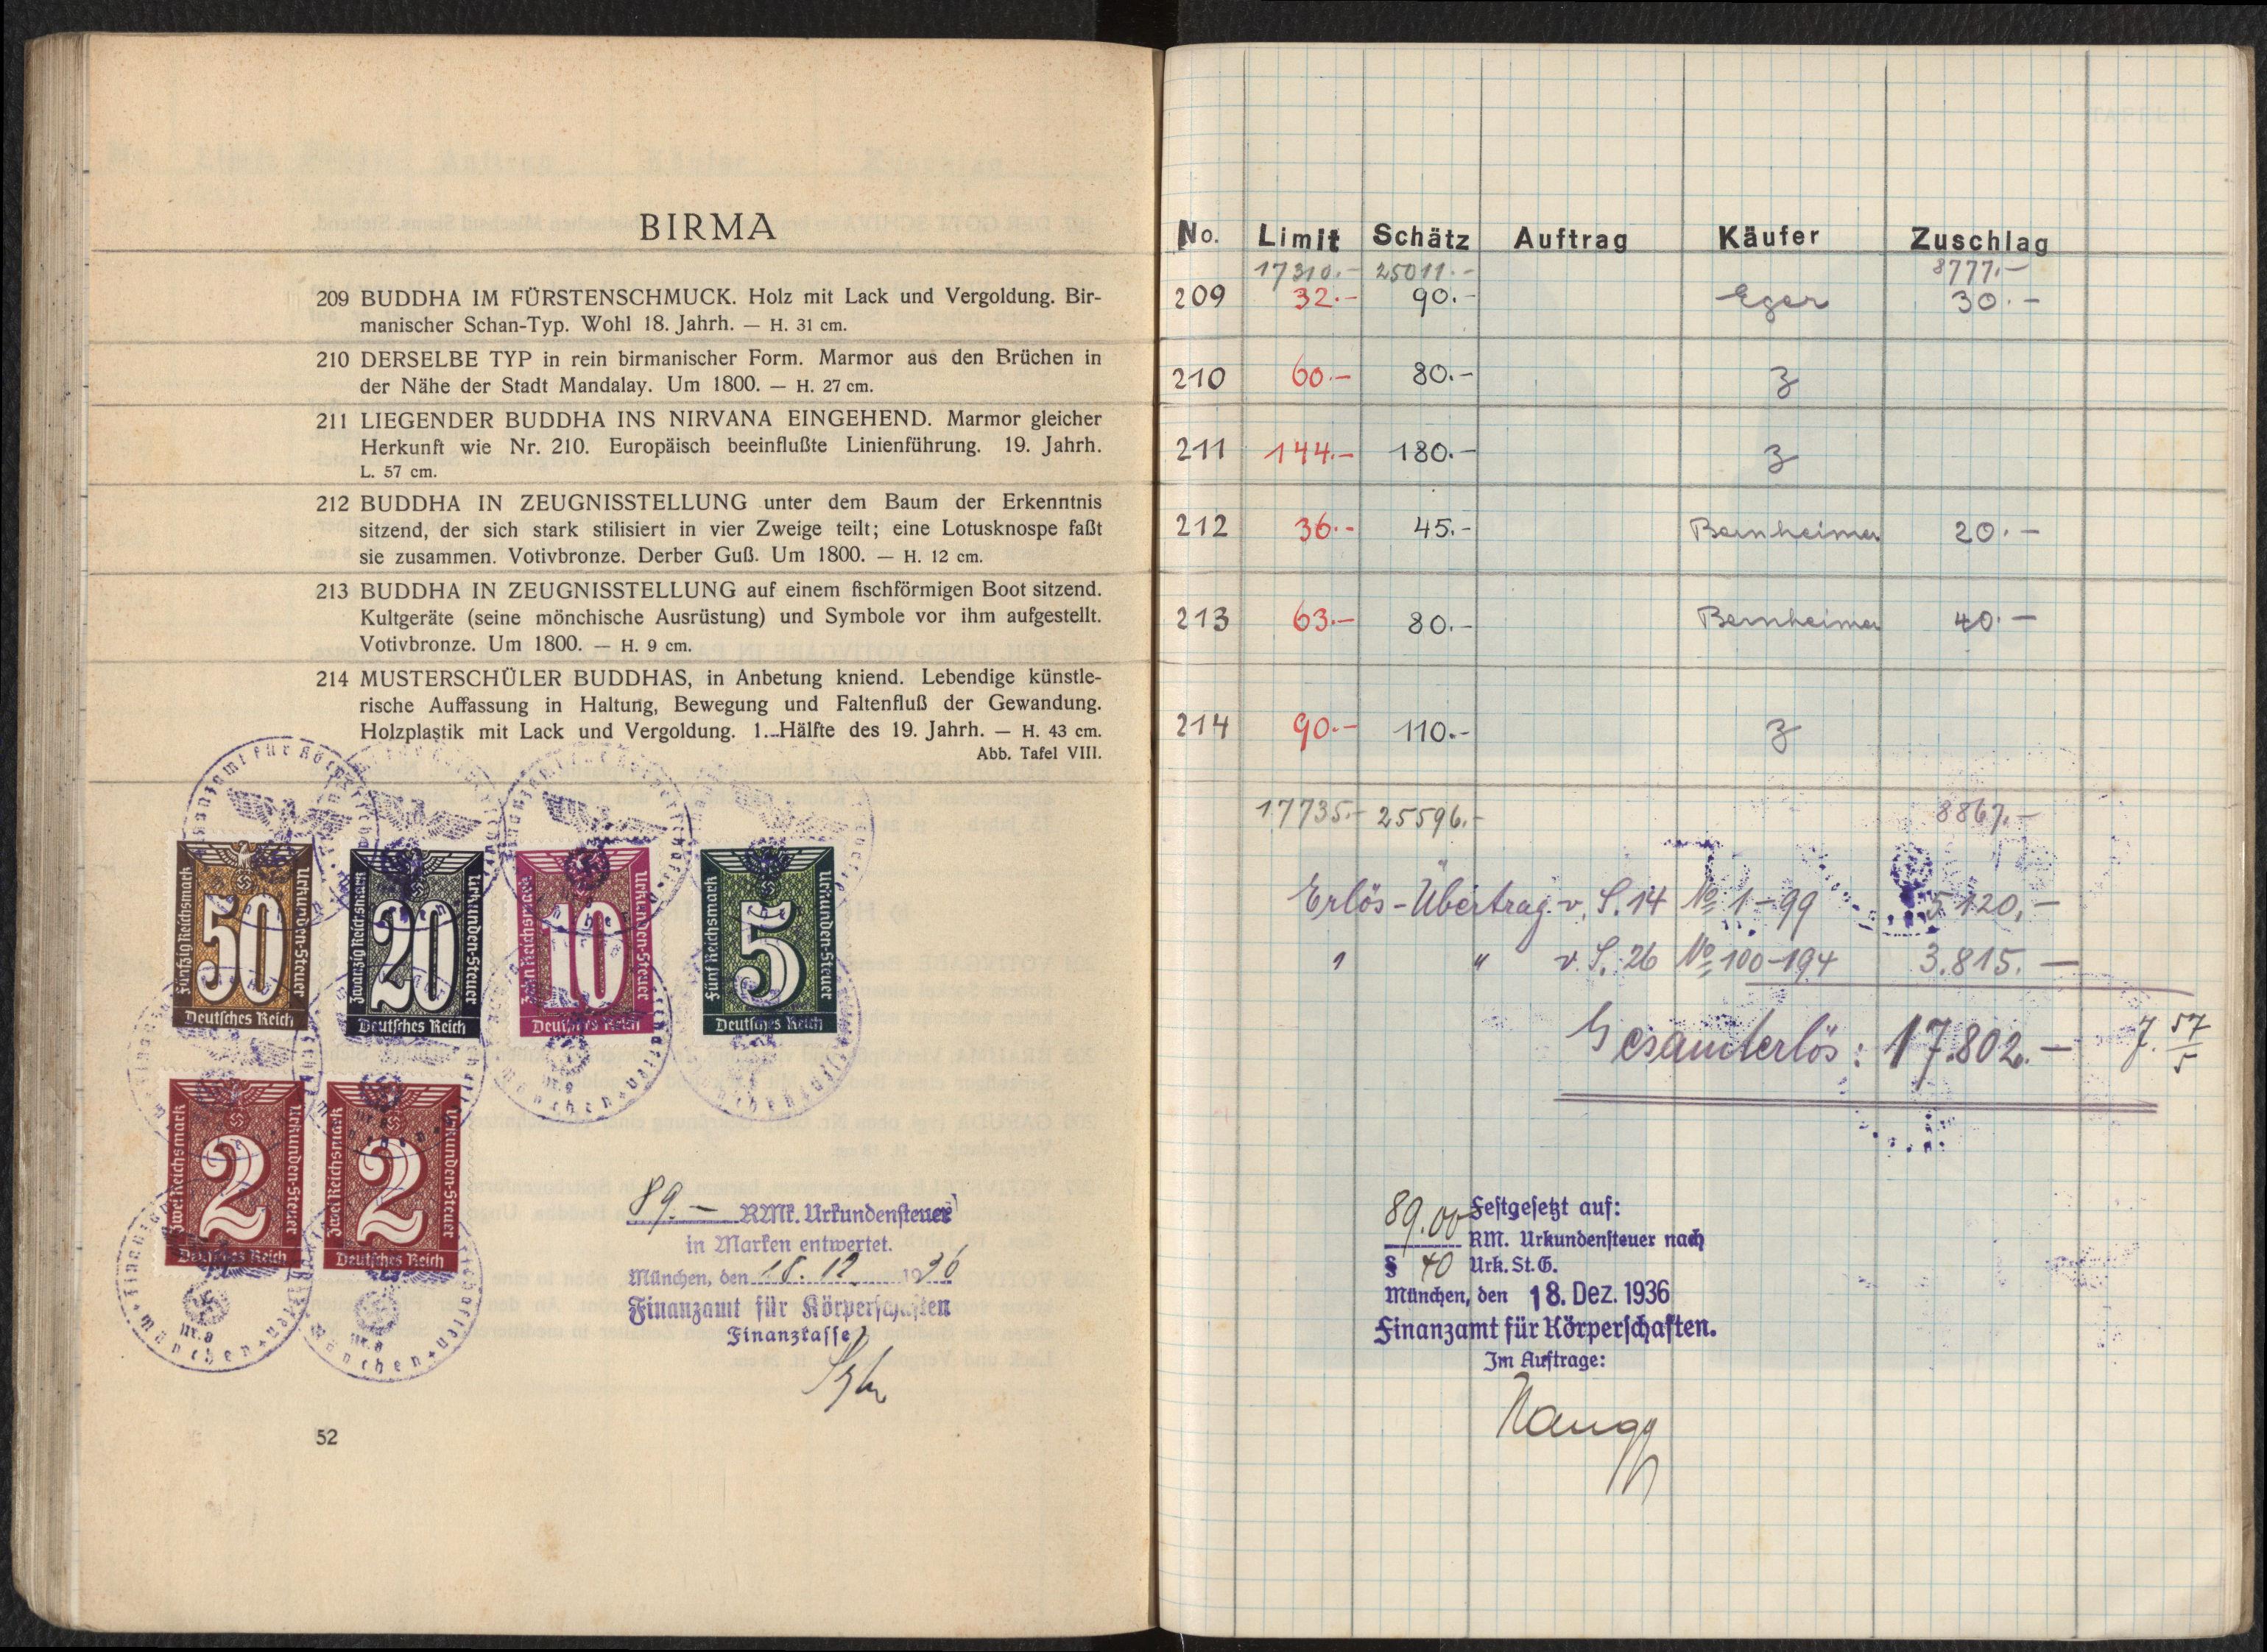 BIRMA
209 BUDDHA IM FÜRSTENSCHMUCK. Holz mit Lack und Vergoldung. Bir-
manischer Schan-Typ. Wohl 18. Jahrh. — H. 31 cm.
210 DERSELBE TYP in rein birmanischer Form. Marmor aus den Brüchen in
der Nähe der Stadt Mandalay. Um 1800. — H. 27 cm.
211 LIEGENDER BUDDHA INS NIRVANA EINGEHEND. Marmor gleicher
Herkunft wie Nr. 210. Europäisch beeinflußte Linienführung. 19. Jahrh.
L. 57 cm.
212 BUDDHA IN ZEUGNISSTELLUNG unter dem Baum der Erkenntnis
sitzend, der sich stark stilisiert in vier Zweige teilt; eine Lotusknospe faßt
sie zusammen. Votivbronze. Derber Guß. Um 1800. — H. 12 cm.
213 BUDDHA IN ZEUGNISSTELLUNG auf einem fischförmigen Boot sitzend.
Kultgeräte (seine mönchische Ausrüstung) und Symbole vor ihm aufgestellt.
Votivbronze. Um 1800. — H. 9 cm.
214 MUSTERSCHÜLER BUDDHAS, in Anbetung kniend. Lebendige künstle-
rische Auffassung in Haltung, Bewegung und Faltenfluß der Gewandung.
Holzplastik mit Lack und Vergoldung. 1. Hälfte des 19. Jahrh. — H. 43 cm.
Abb. Tafel VIII.
Fünfzig Reichsmark 50 Urkunden-Steuer
Deutsches Reich
Zwanzig Reichsmark 20 Urkunden-Steuer
Deutsches Reich
Zehn Reichsmark 10 Urkunden-Steuer
Deutsches Reich
Fünf Reichsmark 5 Urkunden-Steuer
Deutsches Reich
Zwei Reichsmark 2 Urkunden-Steuer
Deutsches Reich
Zwei Reichsmark 2 Urkunden-Steuer
Deutsches Reich
89.— RMk. Urkundensteuer
in Marken entwertet.
München, den 18. 12. 1936
Finanzamt für Körperschaften
Finanzkasse
52
No. Limit Schätz Auftrag Käufer Zuschlag
17310.- 25011.- 8777.-
209 32.- 90.- Eger 30.-
210 60.- 80.- Z
211 144.- 180.- Z
212 36.- 45.- Bernheimer 20.-
213 63.- 80.- Bernheimer 40.-
214 90.- 110.- Z
17735.- 25596.- 8867.-
Erlös-Übertrag v. S. 14 No 1-99 5120.-
" " v. S. 26 No 100-194 3.815.-
Gesamterlös: 17.802.-
89.00 Festgesetzt auf:
RM. Urkundensteuer nach
§ 40 Urk. St. G.
München, den 18. Dez. 1936
Finanzamt für Körperschaften.
Im Auftrage: